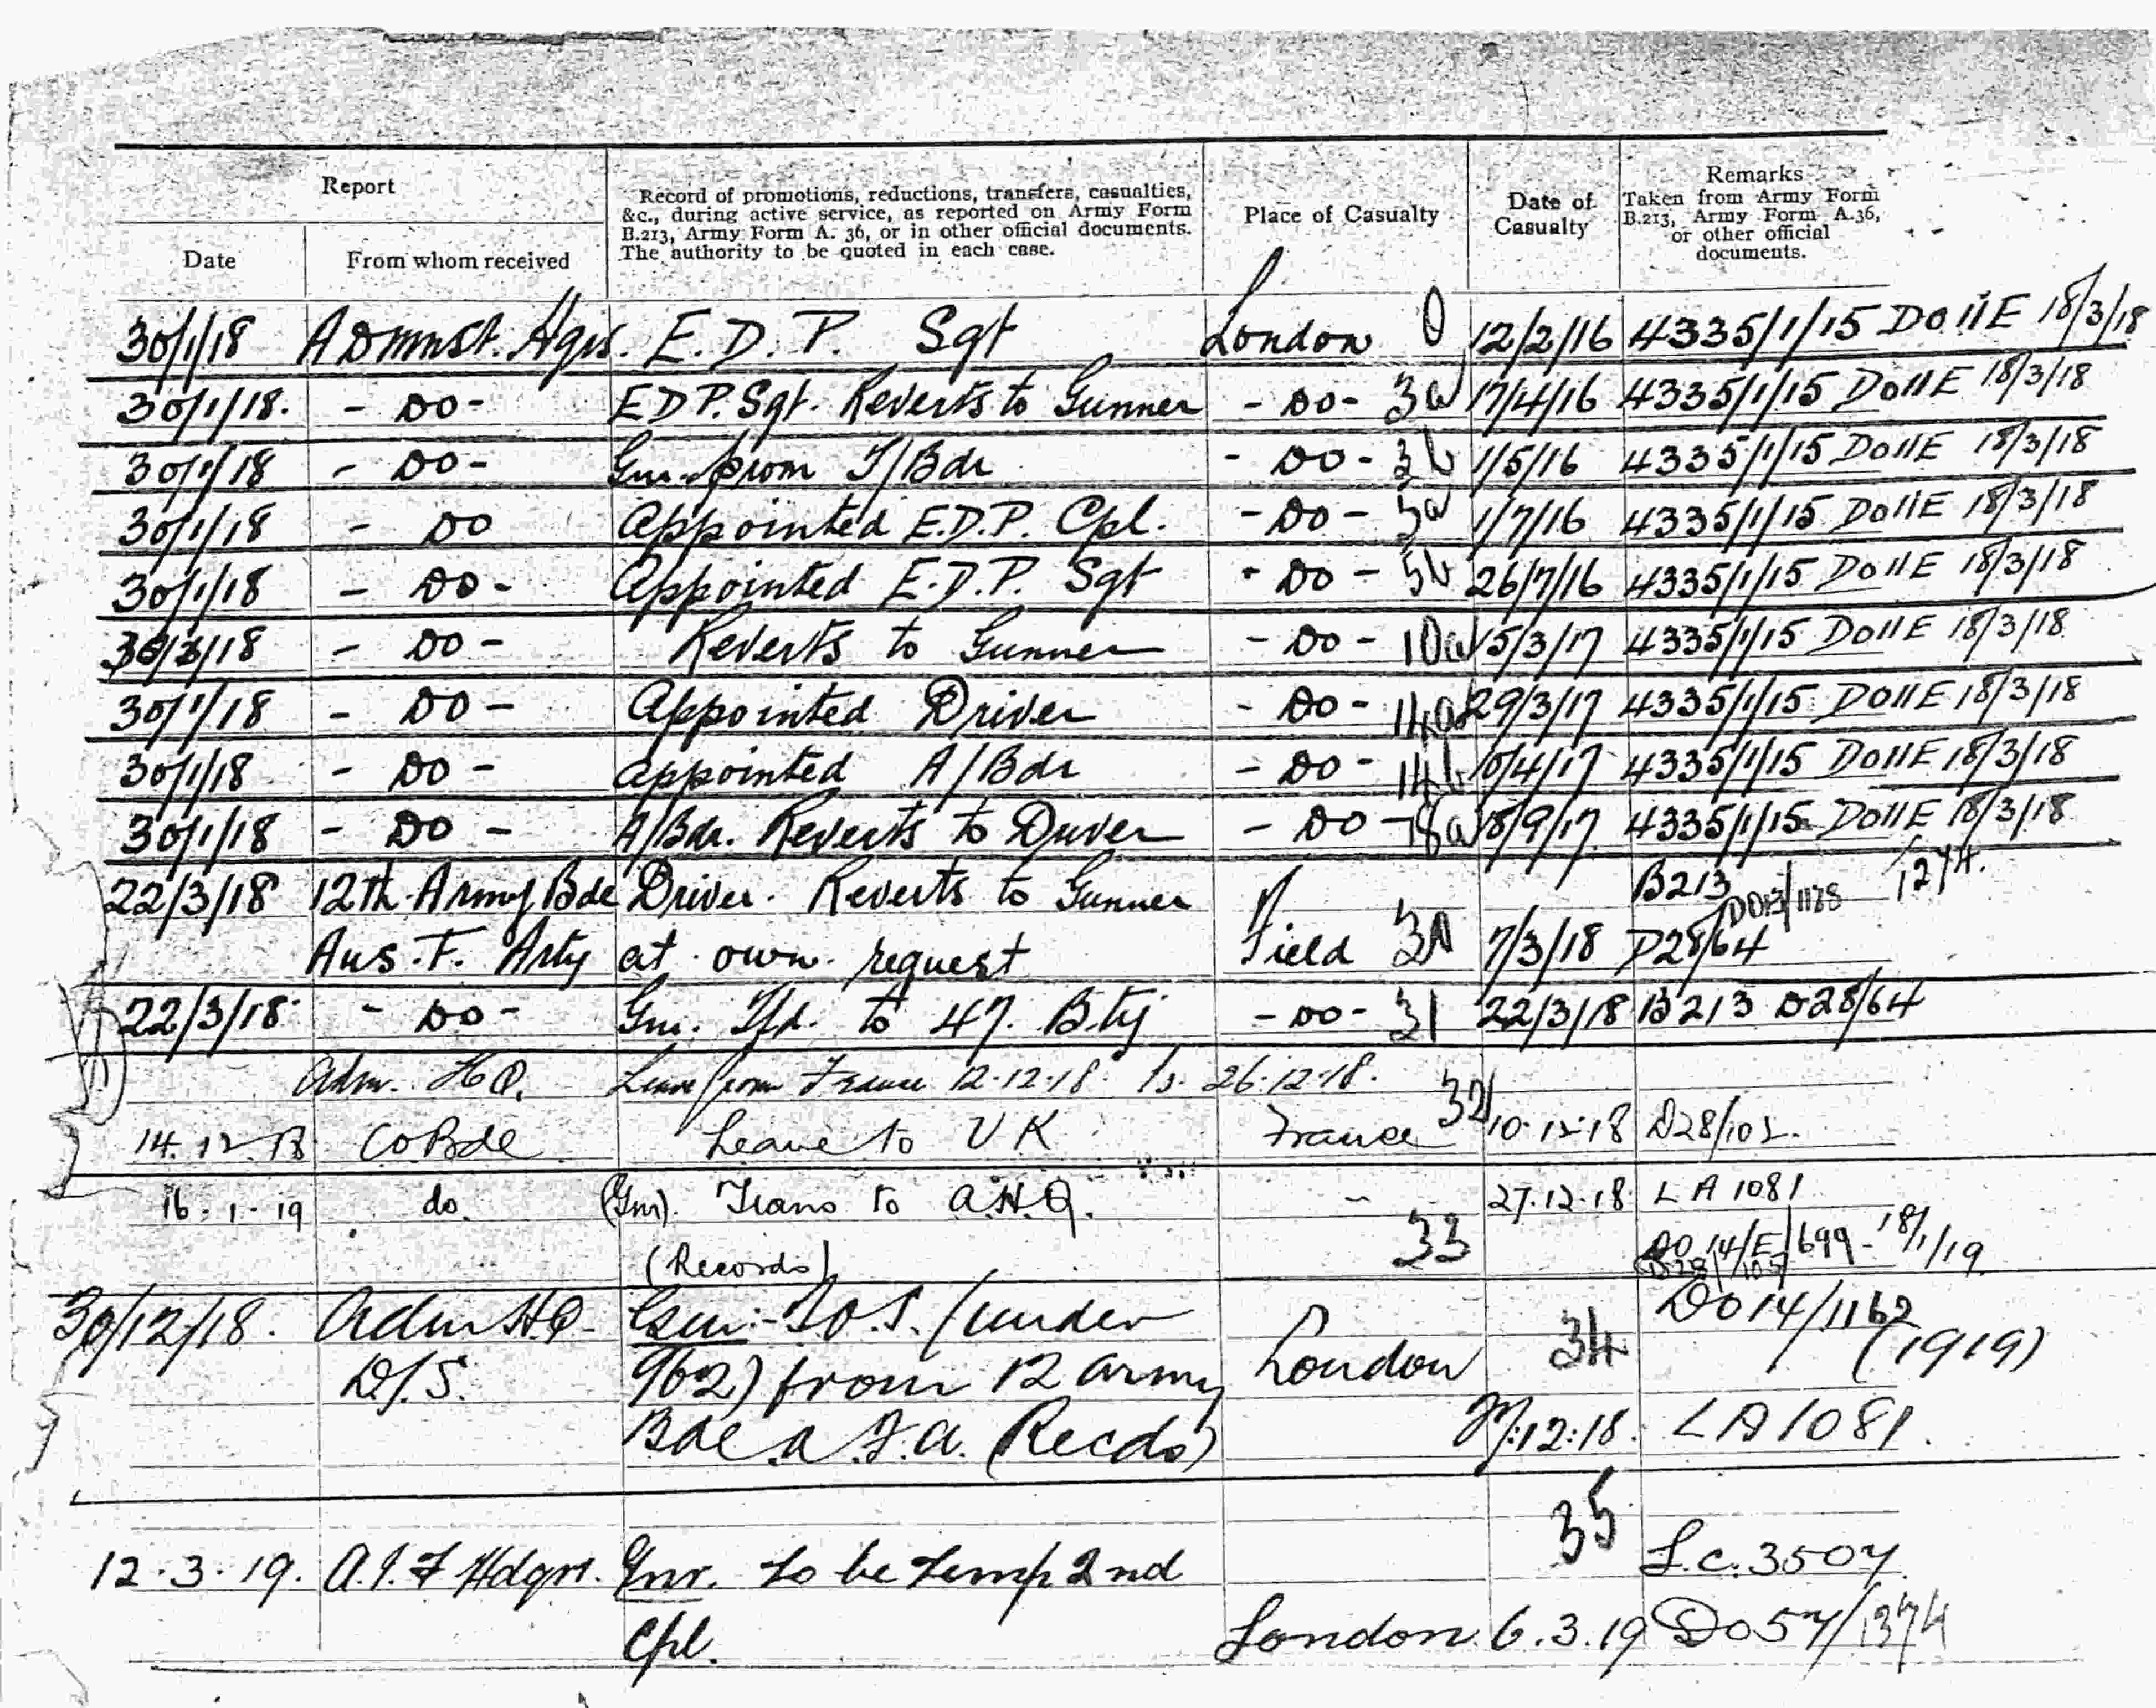 Report
Record of promotions, reductions, transfers, casualties,
&c., during active service, as reported on Army Form
B.213, Army Form A. 36, or in other official documents.
The authority to be quoted in each case.
Place of Casualty
Date of
Casualty
Remarks
Taken from Army Form
B.213, Army Form A.36,
or other official
documents.
Date
From whom received
30/1/18 Admnst. Hqrs. E.D.P. Sgt London 12/2/16 4335/1/15 DO11E 18/3/18
30/1/18. - DO - EDP. Sgt. Reverts to Gunner - DO - 3a 17/4/16 4335/1/15 DO11E 18/3/18
30/1/18 - DO - Gnr. prom T/Bdr - DO - 3b 1/5/16 4335/1/15 DO11E 18/3/18
30/1/18 - DO Appointed E.D.P. Cpl. - DO - 5a 1/7/16 4335/1/15 DO11E 18/3/18
30/1/18 - DO - Appointed E.D.P. Sgt - DO - 5b 26/7/16 4335/1/15 DO11E 18/3/18
/18 - DO - Reverts to Gunner - DO - 10a 15/3/17 4335/1/15 DO11E 18/3/18
30/1/18 - DO - Appointed Driver - DO - 14a 29/3/17 4335/1/15 DO11E 18/3/18
30/1/18 - DO - appointed A/Bdr - DO - 14b 10/4/17 4335/1/15 DO11E 18/3/18
30/1/18 - DO - A/Bdr. Reverts to Driver - DO - 18a 18/9/17 4335/1/15 DO11E 18/3/18
22/3/18 12th Army Bde Driver. Reverts to Gunner B213 1274.
Aus. F. Arty at own request Field 30 7/3/18 D28/64
22/3/18 - DO - Gnr. Tfd. to 47. Bty - DO - 31 22/3/18 B213 D28/64
Adm. HQ. Leave from France 12.12.18. to 26.12.18.
14.12.18 CO Bde Leave to UK France 32 10.12.18
16-1-19 do. (Gnr). Trans to A.H.Q. - 27.12.18 LA 1081
(Records) 33 DO 14/E/699 - 18/1/19
30/12/18. Adm H.Q. Gnr:- T.O.S. (under 34 DO 14/1162
D/S. 962) from 12 army London (1919)
Bde A.F.A. (Recds) :12:18. LA 1081.
35
12.3.19. A.I.F Hdqrs. Gnr. to be temp 2nd L.c. 3507
Cpl. London. 6.3.19 DO 57/1374